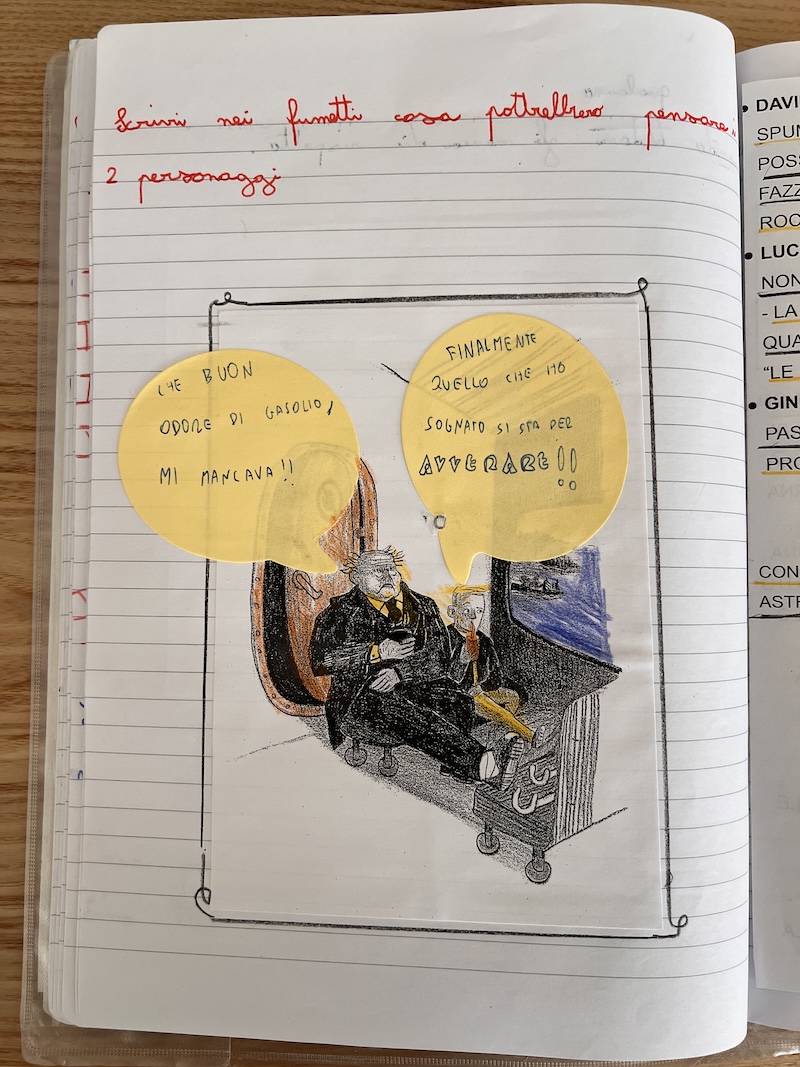 Scrivi nei fumetti cosa pottrebbero pensare i
2 personaggi
CHE BUON
ODORE DI GASOLIO,
MI MANCAVA!!
FINALMENTE
QUELLO CHE HO
SOGNATO SI STA PER
AVVERARE!!
• DAVI
SPUN
POSS
FAZZ
ROC
• LUC
NON
- LA
QUA
“LE
• GIN
PAS
PRO
CON
ASTR